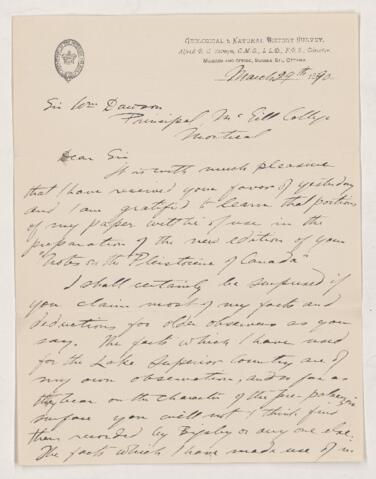 GEOLOGICAL & NATURAL HISTORY SURVEY,
Alfred R. C. Selwyn, C.M.G., L.L.D., F.R.S., Director.
MUSEUM AND OFFICE, SUSSEX ST., OTTAWA.
March 29th 1890.
Sir Wm Dawson
Principal McGill College
Montreal
Dear Sir
It is with much pleasure
that I have received your favor of yesterday
and I am gratified to learn that portions
of my paper will be of use in the
preparation of the new edition of your
"Notes on the Pleistocene of Canada"
I shall certainly be surprised if
you claim most of my facts and
deductions for older observers as you
say. The facts which I have used
for the Lake Superior Country are of
my own observation, and so far as
they bear on the character of the pre-
surface you will not I think find
them recorded by Bigsby or any one else.
The facts which I have made use of in